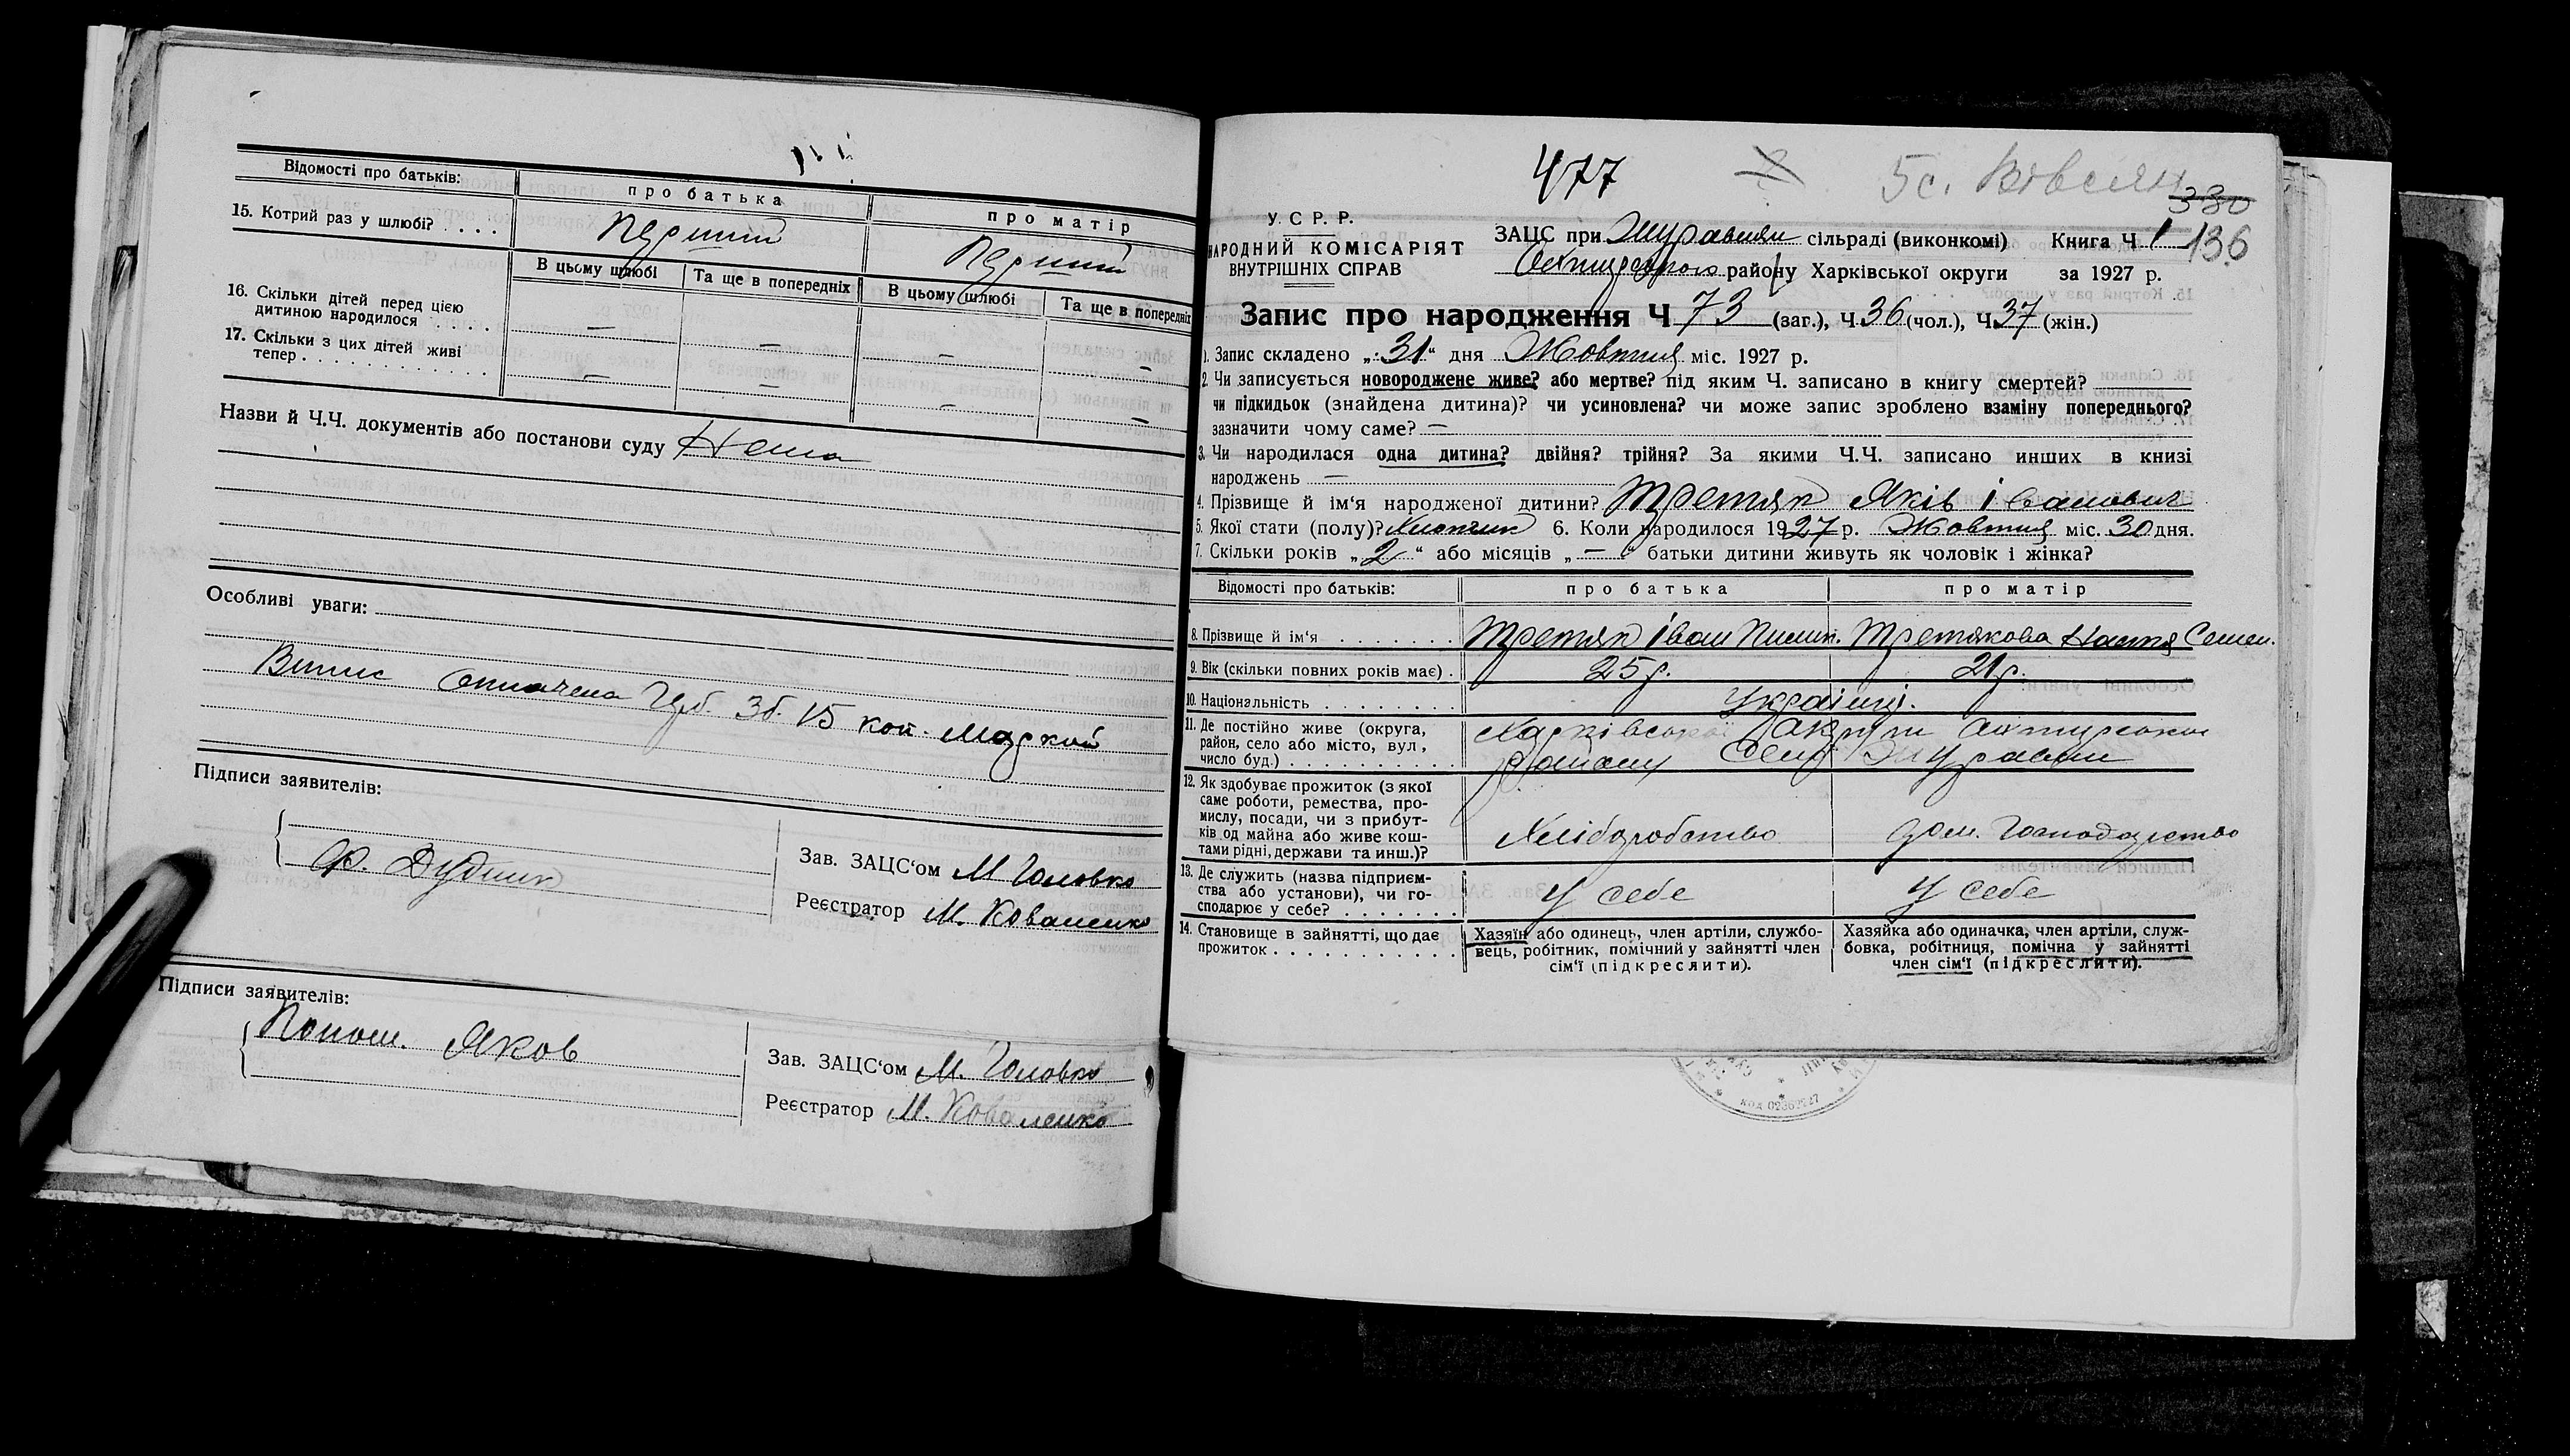 Відомості про батьків: про батька про матір
15. Котрий раз у шлюбі? . . . . Перший Перший
В цьому шлюбі Та ще в попередніх В цьому шлюбі Та ще в попередніх
16. Скільки дітей перед цією
дитиною народилося . . . . . — — — —
17. Скільки з цих дітей живі
тепер . . . . . . . . . . . . — — — —
Назви й Ч.Ч. документів або постанови суду Нема
Особливі уваги:
Випис Зб. 15 коп. маркой
Підписи заявителів:
Ф. Дудник
Зав. ЗАЦС'ом М Головко
Реєстратор М. Коваленко
Підписи заявителів:
Яков
Зав. ЗАЦС'ом М. Головко
Реєстратор М. Коваленко
477 5с.
330
У. С Р. Р.
НАРОДНИЙ КОМІСАРІЯТ
ВНУТРІШНІХ СПРАВ
ЗАЦС при сільраді (виконкомі) Книга Ч 1 136
району Харківської округи за 1927 р.
Запис про народження Ч 73 (заг.), Ч. 36 (чол.), Ч. 37 (жін.)
1. Запис складено „31“ дня Жовтня міс. 1927 р.
2. Чи записується новороджене живе? або мертве? під яким Ч. записано в книгу смертей?
чи підкидьок (знайдена дитина)? чи усиновлена? чи може запис зроблено взаміну попереднього?
зазначити чому саме? —
3. Чи народилася одна дитина? двійня? трійня? За якими Ч.Ч. записано инших в книзі
народжень —
4. Прізвище й ім'я народженої дитини? Третяк Яків Іванович
5. Якої стати (полу)? Хлопчик 6. Коли народилося 1927 р. Жовтня міс. 30 дня.
7. Скільки років „2“ або місяців „—“ батьки дитини живуть як чоловік і жінка?
Відомості про батьків: про батька про матір
8. Прізвище й ім'я . . . . . . . Третяк Іван Пилип. Третякова Настя Семен.
9. Вік (скільки повних років має) . 25 р. 21 р.
10. Національність . . . . . . . . Українці.
11. Де постійно живе (округа,
район, село або місто, вул,
число буд.) . . . . . . . . . . . Харківської
району село
12. Як здобуває прожиток (з якої
саме роботи, ремества, про-
мислу, посади, чи з прибут-
ків од майна або живе кош-
тами рідні, держави та инш.)? Хліборобство дом. Господарство
13. Де служить (назва підприєм-
ства або установи), чи го-
сподарює у себе? . . . . . . . У себе У себе
14. Становище в зайнятті, що дає
прожиток . . . . . . . . . . . .
Хазяїн або одинець, член артіли, службо-
вець, робітник, помічний у зайнятті член
сім'ї (підкреслити).
Хазяйка або одиначка, член артіли, служ-
бовка, робітниця, помічна у зайнятті
член сім'ї (підкреслити).